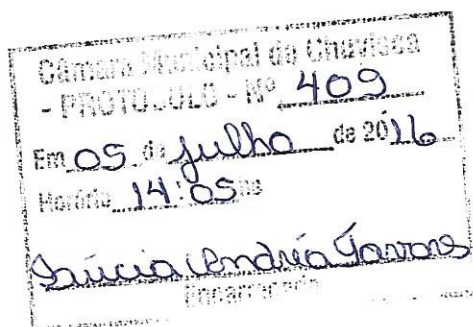 Câmara Municipal de Chuvisca
- PROTOCOLO - Nº 409
Em 05 de julho de 2016
Horário 14:05 hs
Lúcia Andréa Tavares
Encarregado